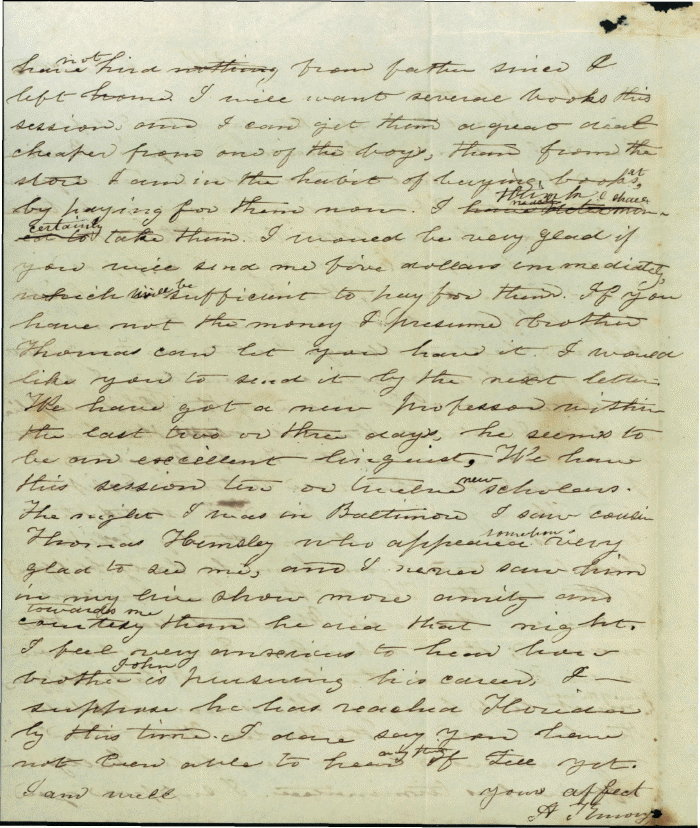 have not hird nothing from father since I
left home. I will want several books this
session, and I can get them a great deal
cheaper from one of the boys, than from the
store I am in the habit of buying books, at
by paying for them now. I think I shall
certainly take them. I would be very glad if
you will send me five dollars immediately,
which will be sufficient to pay for them. If you
have not the money I presume brother
Thomas can let you have it. I would
like you to send it by the next letter.
We have got a new Professor within
the last two or three days, he seems to
be an excellent linguist, We have
this session ten or twelve new scholars.
The night I was in Baltimore I saw cousin
Thomas Hemsley who appeared somehow very
glad to see me, and I never saw him
in my live show more amity and
courtesy towards me than he did that night.
I feel very anscious to hear how
brother John is pursuing his career, I
suppose he has reached Florida
by this time. I dare say you have
not been able to hear any thing of Tell yet.
I am well your affect
A Emory